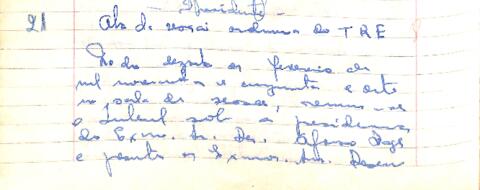 Presidente
21 Ata da sessão ordinaria do TRE
Ao dia dezoito de fevereiro de
mil novecentos e cinquenta e oito
na sala das sessões, reuniu-se
o Tribunal sob a presidencia
do Exmo. Sr. Des. Afonso
e presentes os Exmos. Srs. Desem